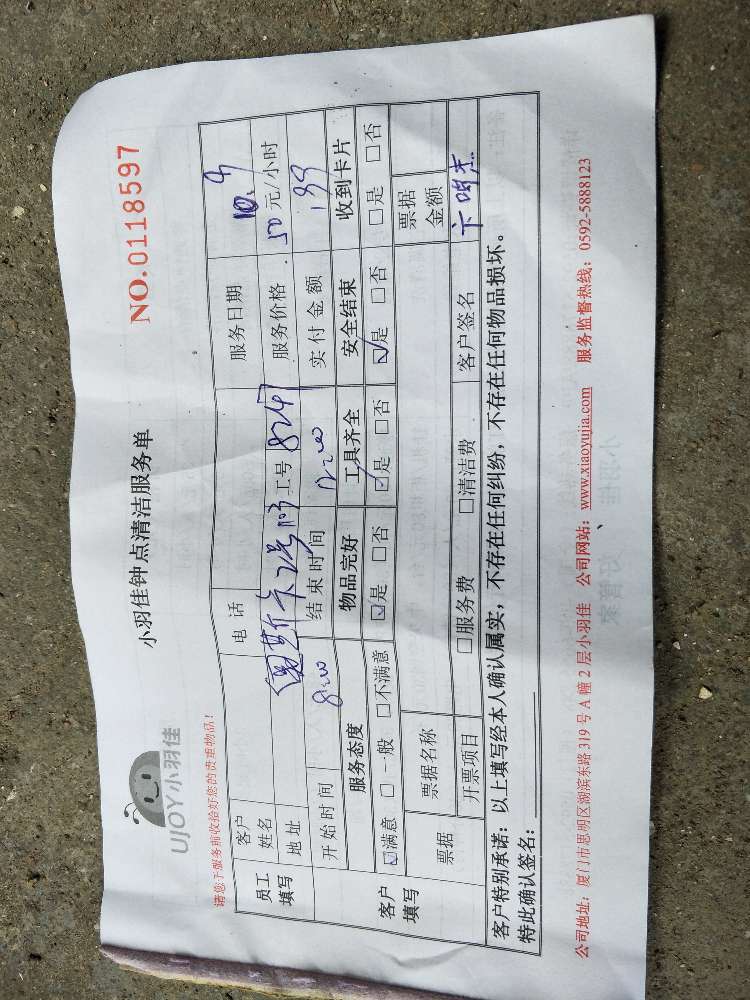 小羽佳钟点清洁服务单
UJOY小羽佳
NO.0118597
请您于服务前收拾好您的贵重物品！
员工填写 客户姓名 电话 服务日期 10.9
地址 工号 8249 服务价格 50元/小时
开始时间 8:00 结束时间 12:00 实付金额
客户填写 服务态度 物品完好 工具齐全 安全结束 收到卡片
☑满意 □一般 □不满意 ☑是 □否 ☑是 □否 ☑是 □否 □是 □否
票据 票据名称 票据金额
开票项目 □服务费 □清洁费 客户签名
客户特别承诺：以上填写经本人确认属实，不存在任何纠纷，不存在任何物品损坏。
特此确认签名：
公司地址：厦门市思明区湖滨东路 319 号 A 幢 2 层小羽佳 公司网站：www.xiaoyujia.com 服务监督热线：0592-5888123